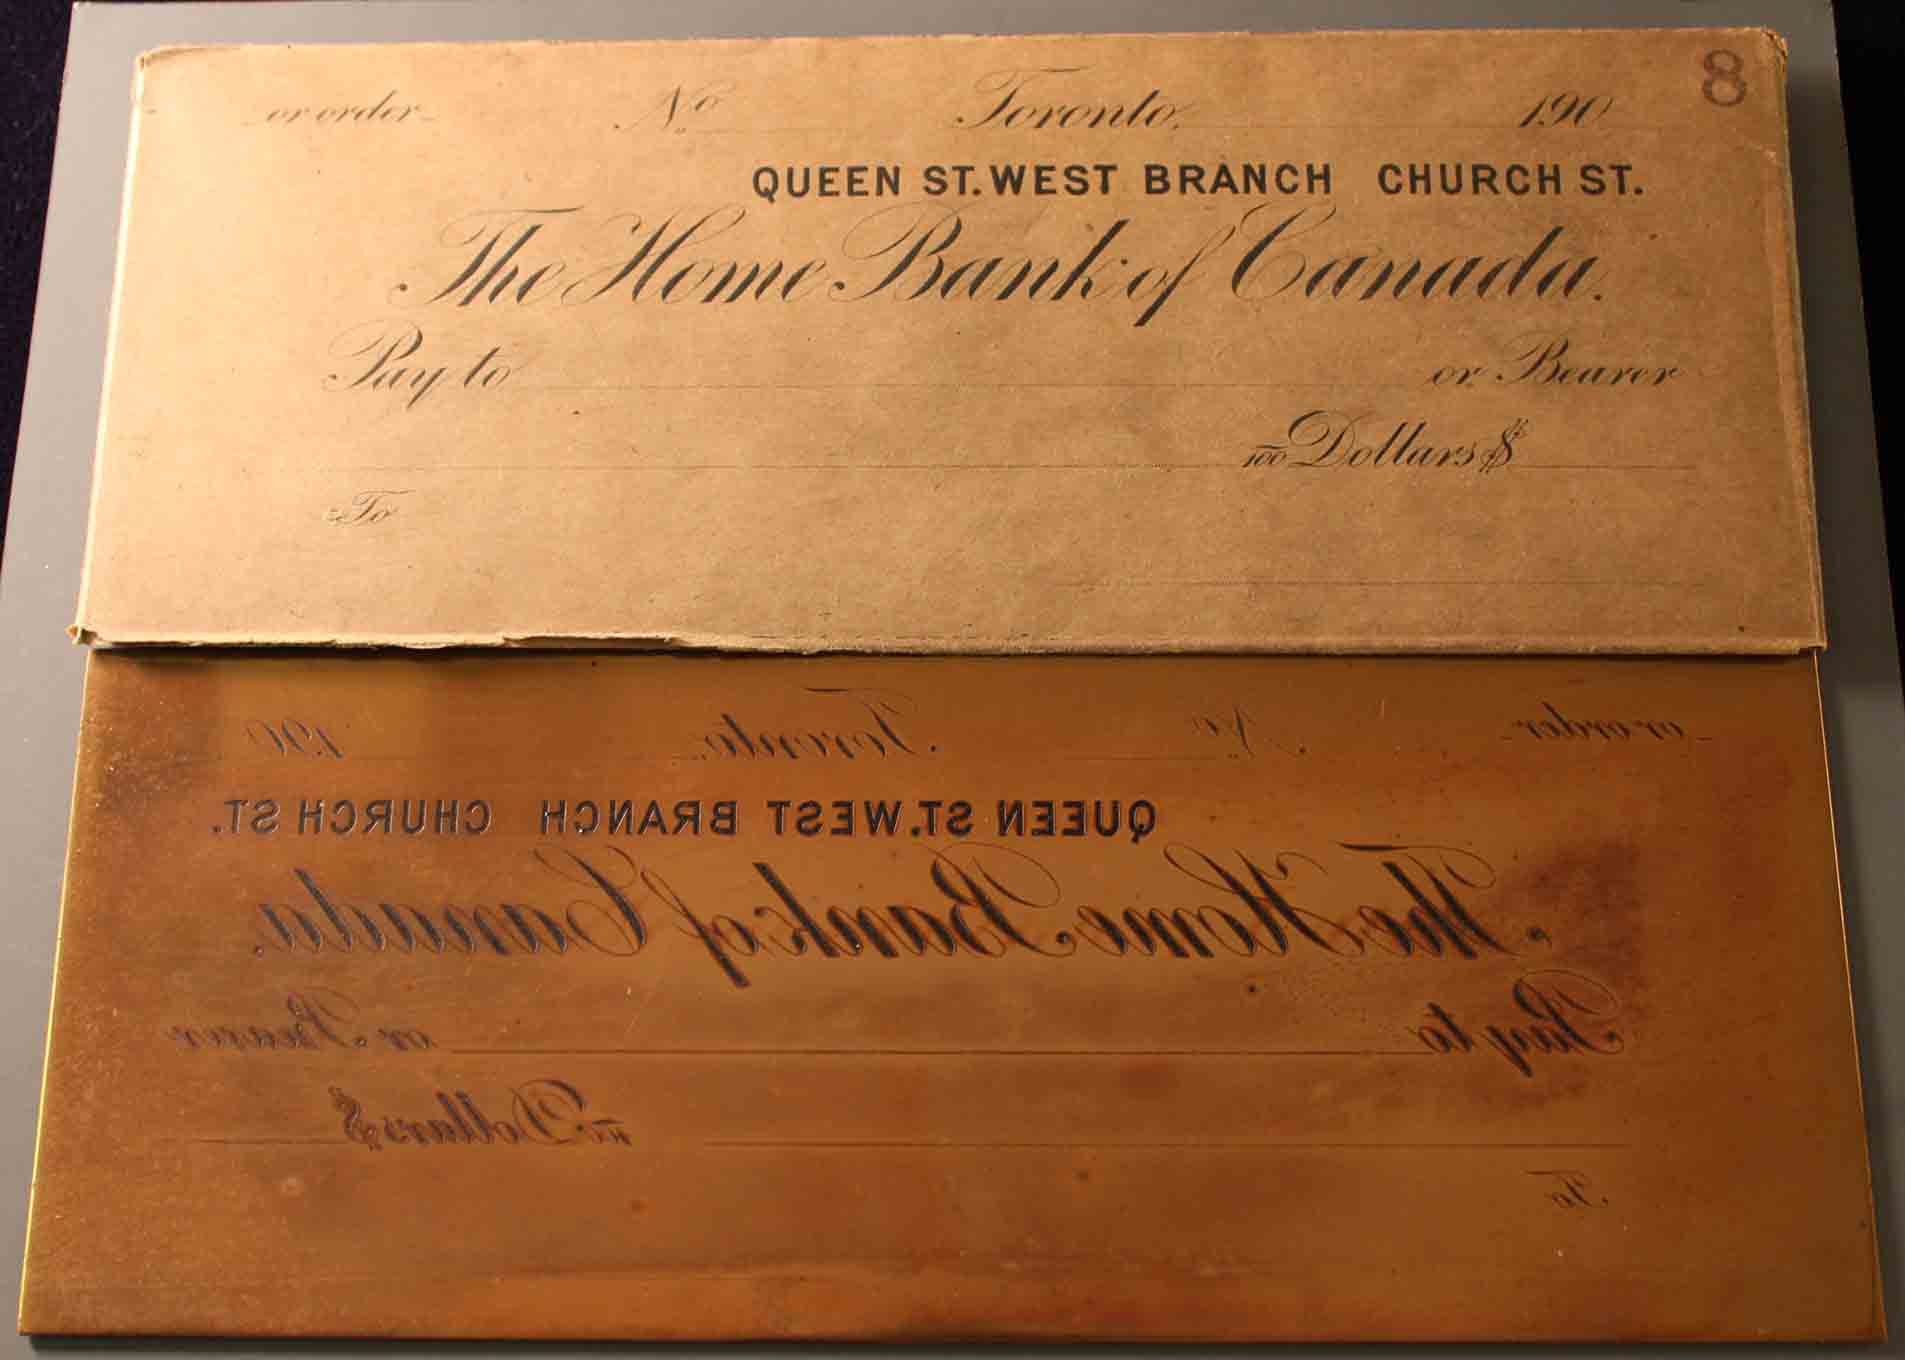 8
or order No Toronto, 190
QUEEN ST. WEST BRANCH CHURCH ST.
The Home Bank of Canada.
Pay to or Bearer
100 Dollars $
To
or order No. Toronto, 190
QUEEN ST. WEST BRANCH CHURCH ST.
The Home Bank of Canada.
Pay to or Bearer
100 Dollars $
To